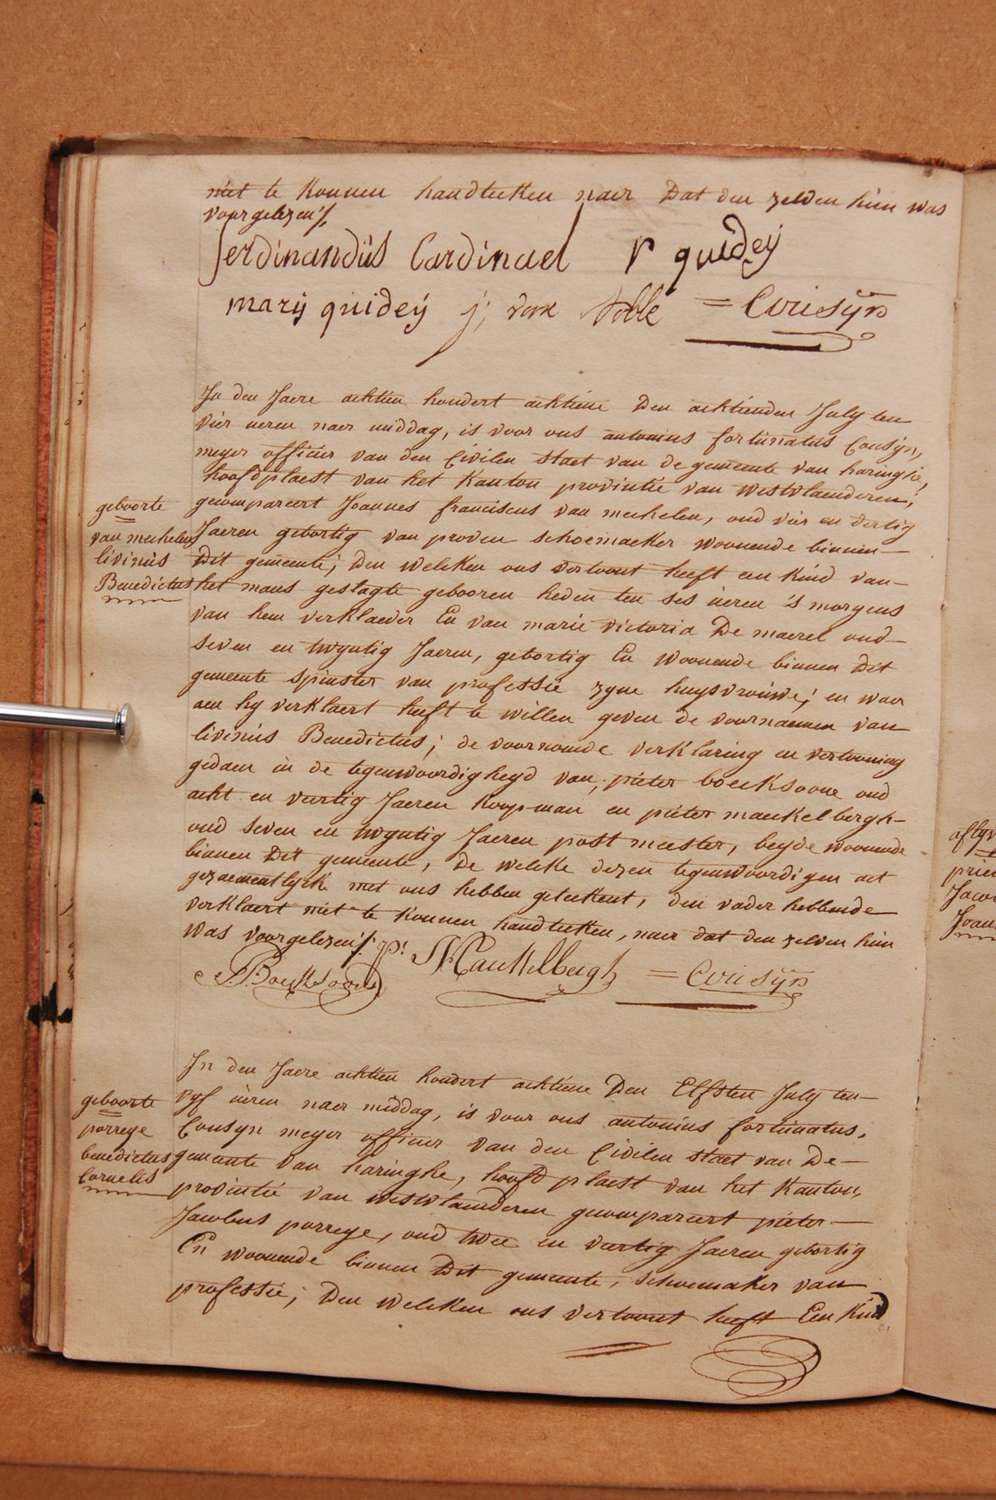 niet te konnen handteeken naer Dat den zelden hem was
voorgelezen /.
ferdinandus Cardinael P quidey
marij quidey j; = Cousyn
In den Jaere achtien hondert achtiene Den achtienden July ten
vier ueren naer middag, is voor ons antonius fortunatus Cousyn,
meyer officier van den Civilen staet van de gemeente van haringhe,
hoofdplaest van het Kanton provintie van westvlaenderen,
gecompareert Joannes franciscus van mechelen, oud vier en dertig
geboorte
van mechelen
livinus
Benedictus
Jaeren gebortig van proven schoemaeker woonende binnen
Dit gemeente; den welcken ons vertoont heeft een kind van
het mans geslagte gebooren heden ten ses ueren 's morgens
van hem verklaeder En van marie victoria De maerel oud
seven en twyntig Jaeren, gebortig En woonende binnen Dit
gemeente spinster van professie zyne huysvrouwe; en waer
aen hy verklaert heeft te willen geven de voornaemen van
livinus Benedictus; de voornomde verklaring en vertooning
gedaen in de tegenwoordigheyd van, pieter boecksoone oud
acht en veertig Jaeren koopman en pieter maeckelbergh
oud seven en twyntig Jaeren post meester, beyde woonende
binnen Dit gemeente, de welke dezen tegenwoordigen act
gezaementlyck met ons hebben geteekent, den vader hebbende
verklaert niet te konnen handteeken, naer dat den zelden hem
was voorgelezen /.
P Boecksoone P: J Maeckelbergh = Cousyn
In den Jaere achtien hondert achtiene Den Elfsten July ten
vyf ueren naer middag, is voor ons antonius fortunatus,
Cousyn meyer officier van den Civilen staet van De
gemeente van haringhe, hoofd plaest van het Kanton,
provintie van westvlaenderen gecompareert pieter
geboorte
porreye
benedictus
Cornelis
Jacobus porreye, oud twee en veertig Jaeren gebortig
En woonende binnen Dit gemeente, schoemaker van
professie; Den welcken ons vertoont heeft Een kind